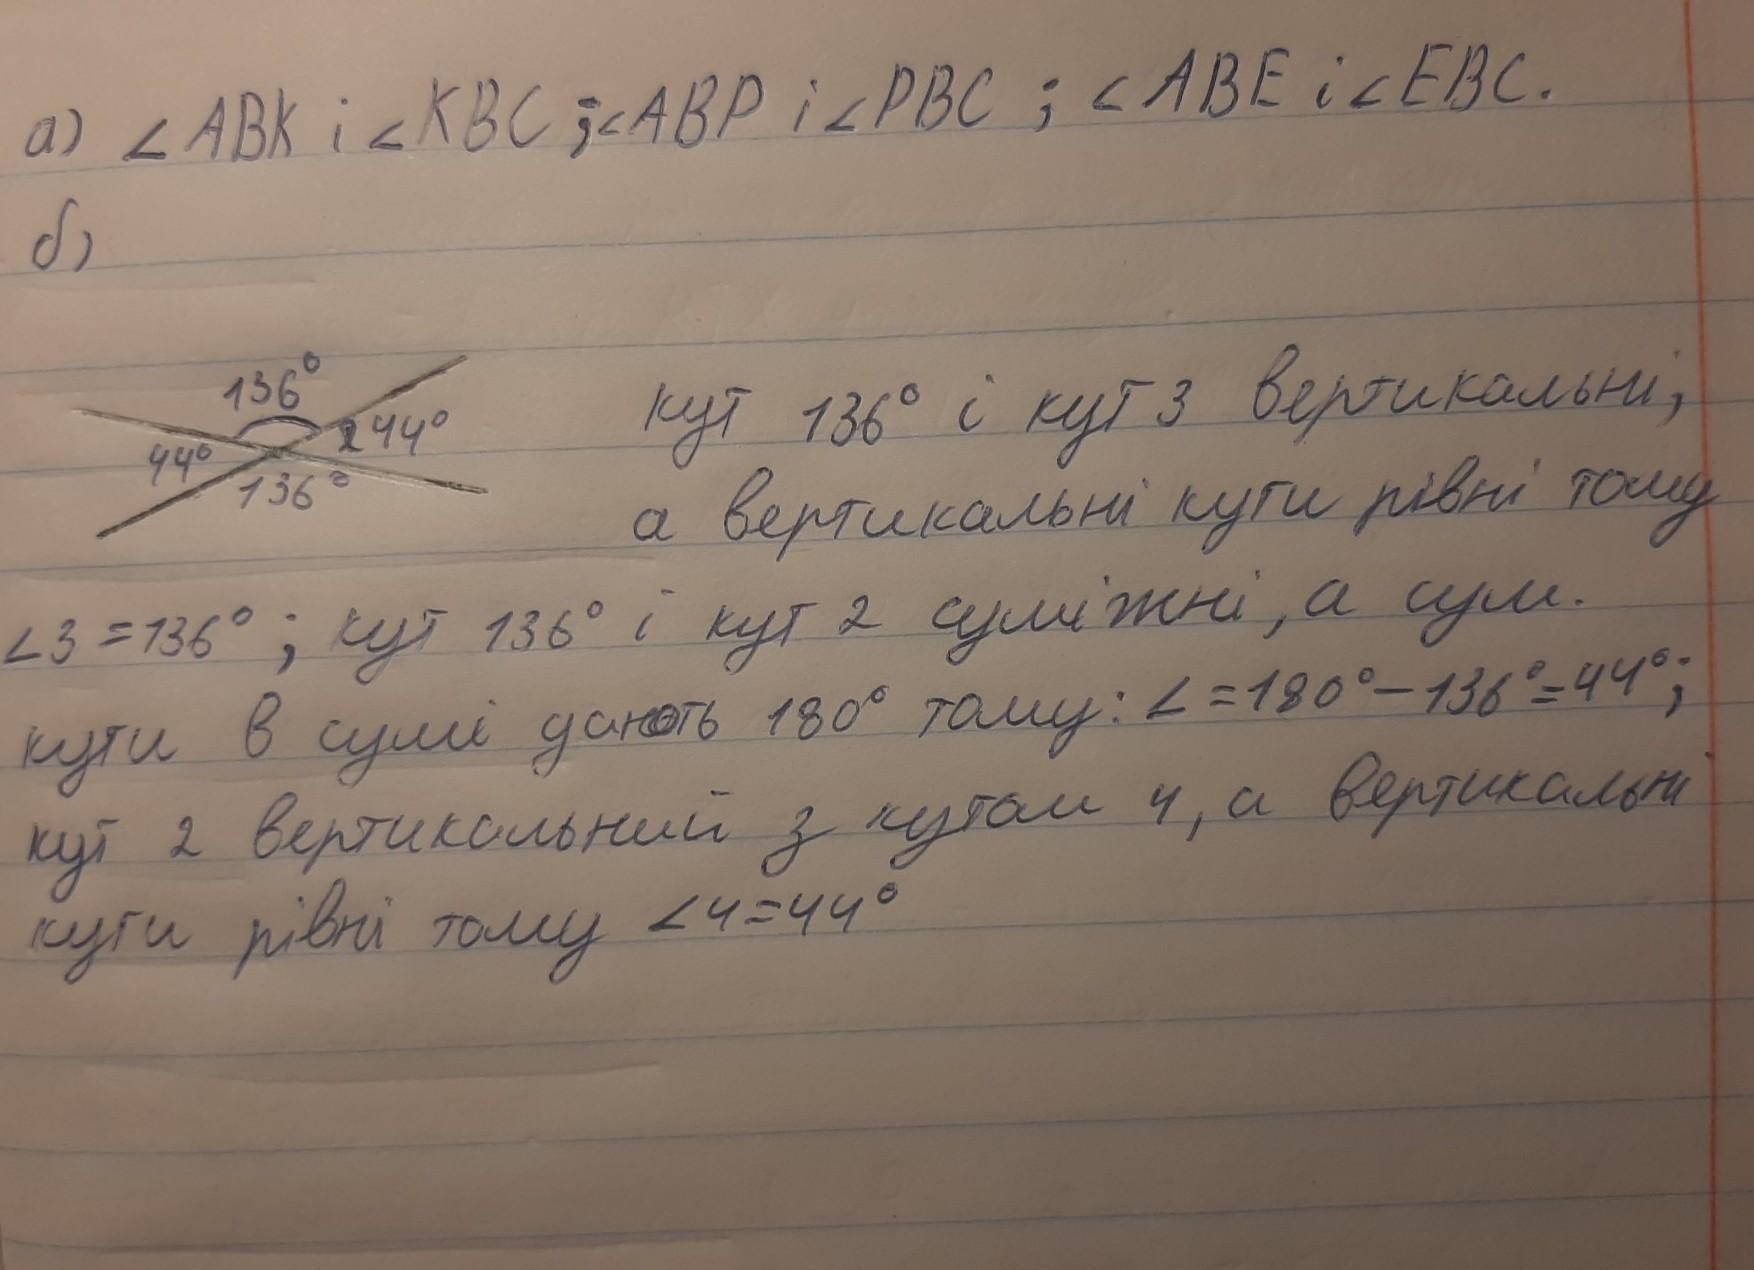 а) ∠ABK і ∠KBC ; ∠ABP і ∠PBC ; ∠ABE і ∠EBC.
б)
136°
44°
2 44°
136°
кут 136° і кут 3 вертикальні,
а вертикальні кути рівні тому
∠3 = 136° ; кут 136° і кут 2 суміжні, а сум.
кути в сумі дають 180° тому: ∠ = 180° – 136° = 44°;
кут 2 вертикальний з кутом 4, а вертикальні
кути рівні тому ∠4 = 44°